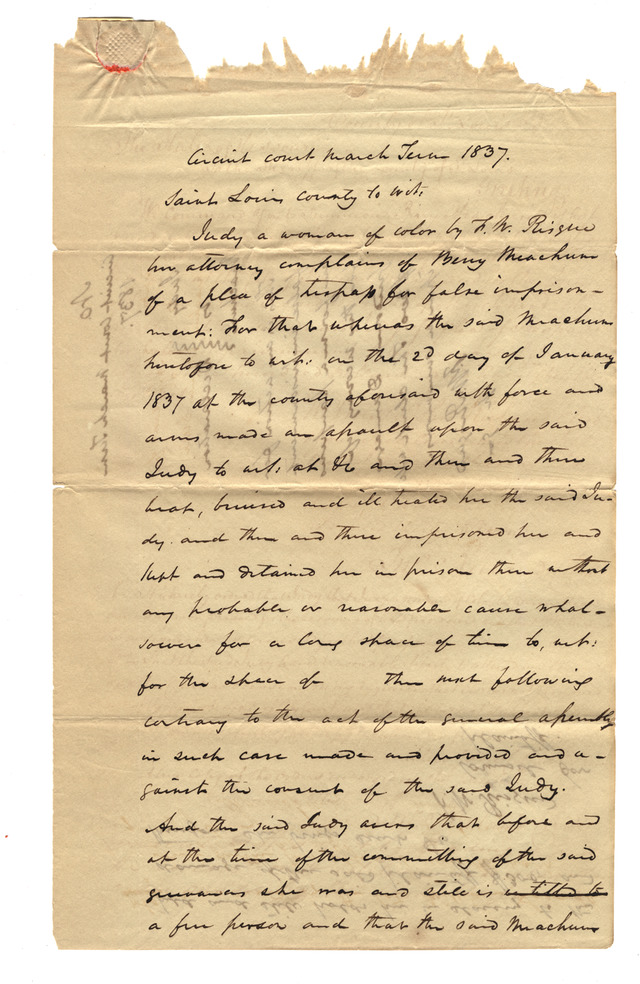 Circuit court March Term 1837.
Saint Louis County to wit:
Judy a woman of color by F. W. Risque
her attorney complains of Berry Meachum
of a plea of trespass for false imprison-
ment: For that whereas the said Meachum
heretofore to wit: on the 2d day of January
1837 at the county aforesaid with force and
arms made an assault upon the said
Judy to wit: at &c and then and there
beat, bruised and ill treated her the said Ju-
dy. and then and there imprisoned her and
kept and detained her in prison there without
any probable or reasonable cause what-
soever for a long space of time to, wit:
for the space of then next following
contrary to the act of the general assembly
in such case made and provided and a-
gainst the consent of the said Judy.
And the said Judy avers that before and
at the time of the committing of the said
grievances she was and still is entitled to
a free person and that the said Meachum